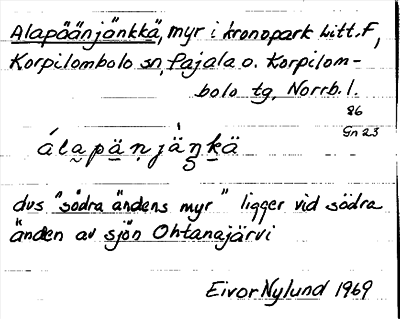 Alapäänjänkkä, myr i kronopark Litt. F,
Korpilombolo sn, Pajala o. Korpilom-
bolo tg, Norrb. l.
86
Gn 23
álapäṇjä̀ŋkä
dvs "södra ändens myr" ligger vid södra
änden av sjön Ohtanajärvi
Eivor Nylund 1969